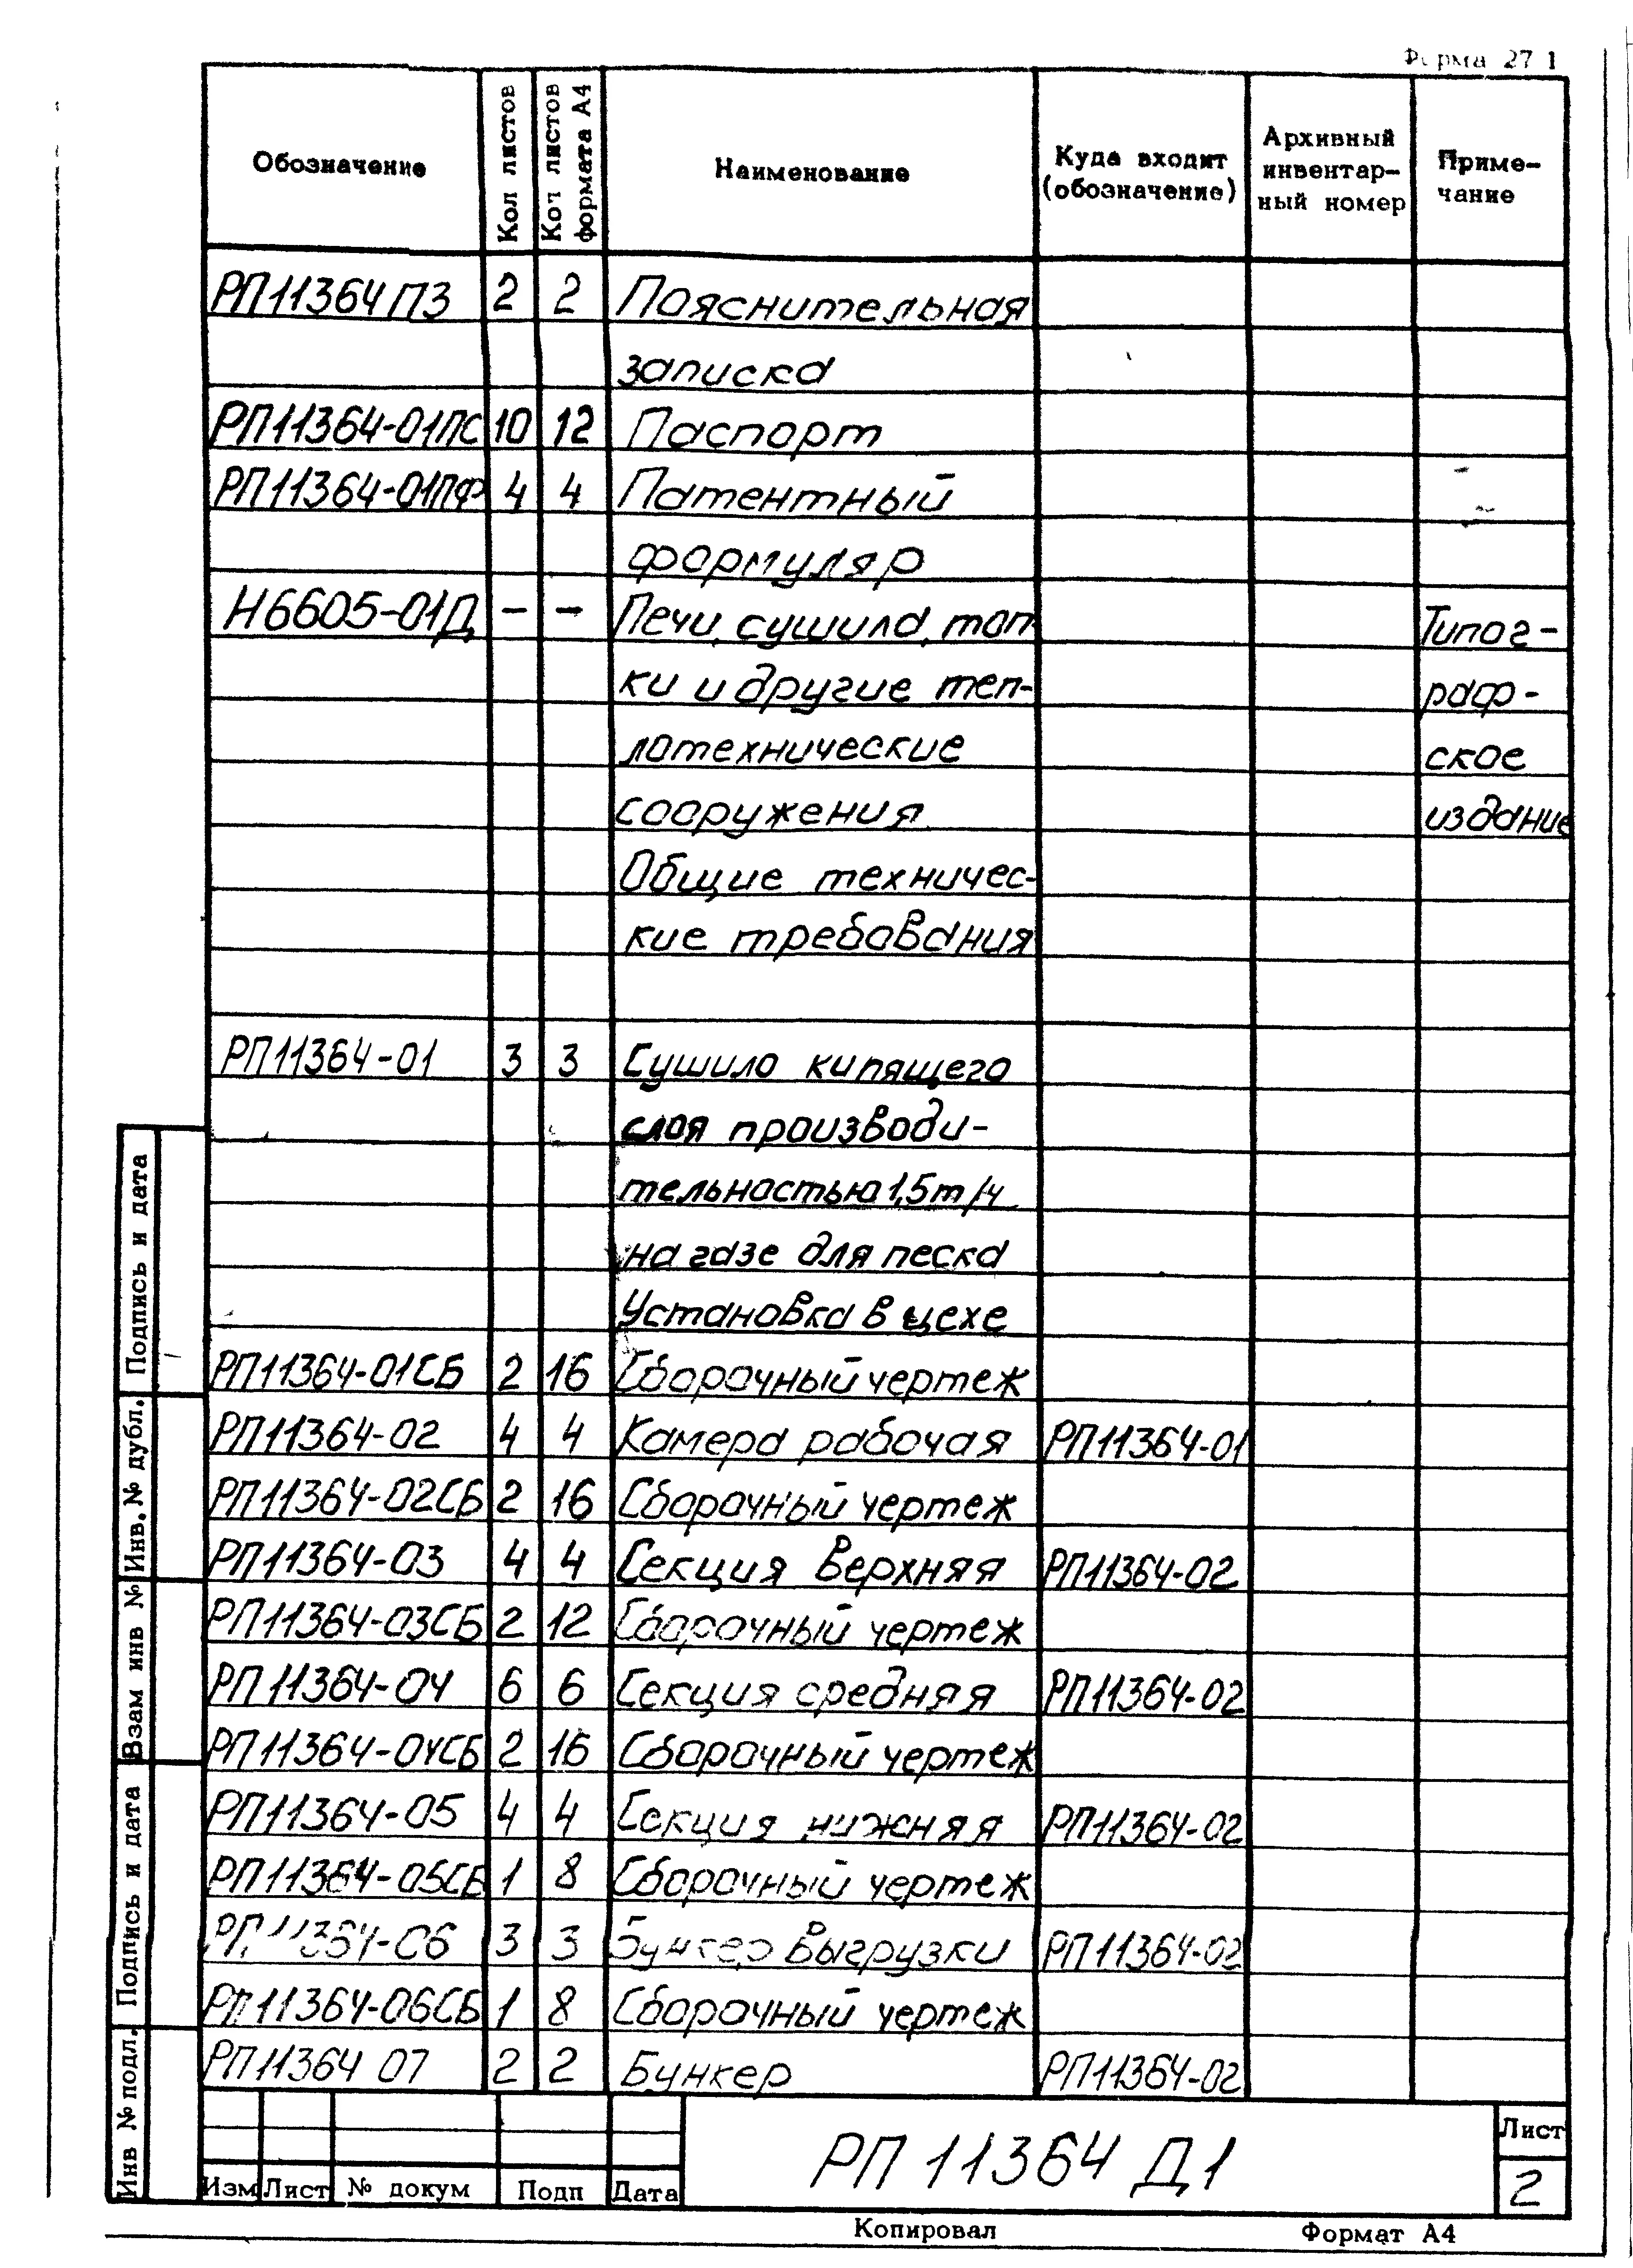 Форма 27 1
Обозначение
Кол листов
Кол листов формата А4
Наименование
Куда входит (обозначение)
Архивный инвентар-ный номер
Приме-чание
РП11364ПЗ 2 2 Пояснительная
записка
РП11364-01ПС 10 12 Паспорт
РП11364-01ПФ 4 4 Патентный
формуляр
Н6605-01Д - - Печи, сушила, топ Типог-
ки и другие теп- раф-
лотехнические ское
сооружения издание
Общие техничес-
кие требования
РП11364-01 3 3 Сушило кипящего
слоя производи-
тельностью 1,5т/ч
на газе для песка
Установка в цехе
РП11364-01СБ 2 16 Сборочный чертеж
РП11364-02 4 4 Камера рабочая РП11364-01
РП11364-02СБ 2 16 Сборочный чертеж
РП11364-03 4 4 Секция верхняя РП11364-02
РП11364-03СБ 2 12 Сборочный чертеж
РП11364-04 6 6 Секция средняя РП11364-02
РП11364-04СБ 2 16 Сборочный чертеж
РП11364-05 4 4 Секция нижняя РП11364-02
РП11364-05СБ 1 8 Сборочный чертеж
РП11364-06 3 3 Бункер выгрузки РП11364-02
РП11364-06СБ 1 8 Сборочный чертеж
РП11364 07 2 2 Бункер РП11364-02
Подпись и дата
Инв. № дубл.
Взам инв №
Подпись и дата
Инв № подл.
Изм Лист № докум Подп Дата
РП 11364 Д1
Лист
2
Копировал Формат А4